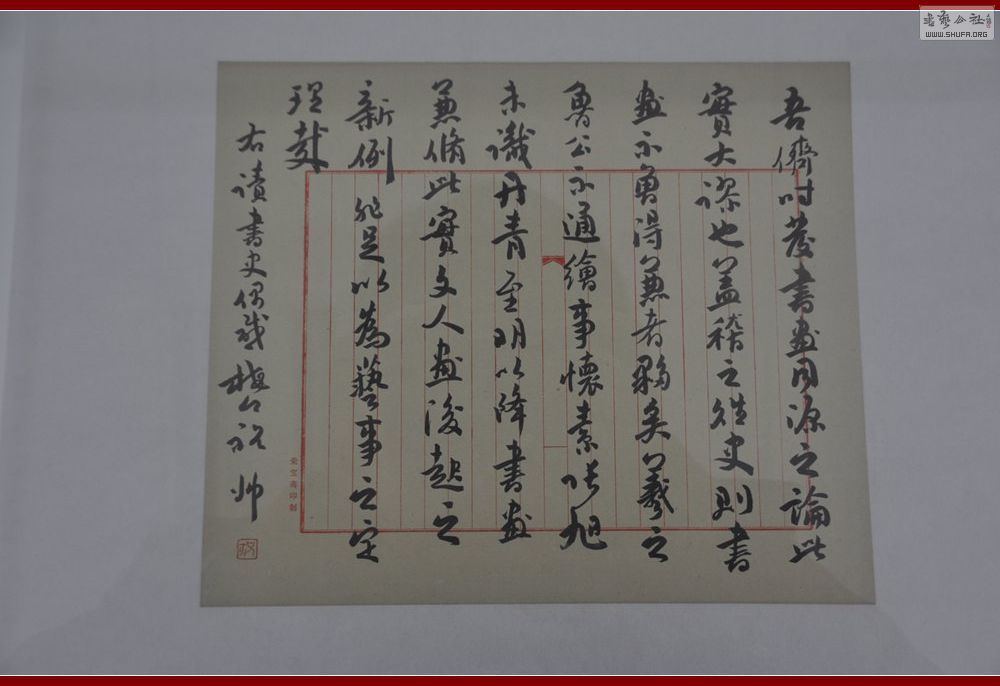 吾儕時發書畫同源之論此
實大謬也蓋稽之往史則書
畫不易得兼者夥矣羲之
魯公不通繪事懷素張旭
未識丹青至明以降書畫
兼脩此實文人畫後起之
新例非足以為藝事之定
理哉
右讀書史偶感 梅 帥
榮寶齋印製
書藝公社
WWW.SHUFA.ORG